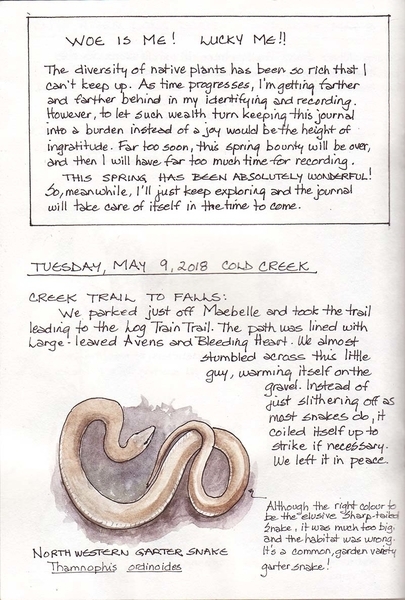 WOE IS ME! LUCKY ME!!
The diversity of native plants has been so rich that I
can't keep up. As time progresses, I'm getting farther
and farther behind in my identifying and recording.
However, to let such wealth turn keeping this journal
into a burden instead of a joy would be the height of
ingratitude. Far too soon, this spring bounty will be over,
and then I will have far too much time for recording.
THIS SPRING HAS BEEN ABSOLUTELY WONDERFUL!
So, meanwhile, I'll just keep exploring and the journal
will take care of itself in the time to come.
TUESDAY, MAY 9, 2018 COLD CREEK
CREEK TRAIL TO FALLS:
We parked just off Maebelle and took the trail
leading to the Log Train Trail. The path was lined with
Large-leaved Avens and Bleeding Heart. We almost
stumbled across this little
guy, warming itself on the
gravel. Instead of
just slithering off as
most snakes do, it
coiled itself up to
strike if necessary.
We left it in peace.
Although the right colour to
be the elusive Sharp-tailed
Snake, it was much too big
and the habitat was wrong.
It's a common, garden variety
garter snake!
NORTHWESTERN GARTER SNAKE
Thamnophis ordinoides